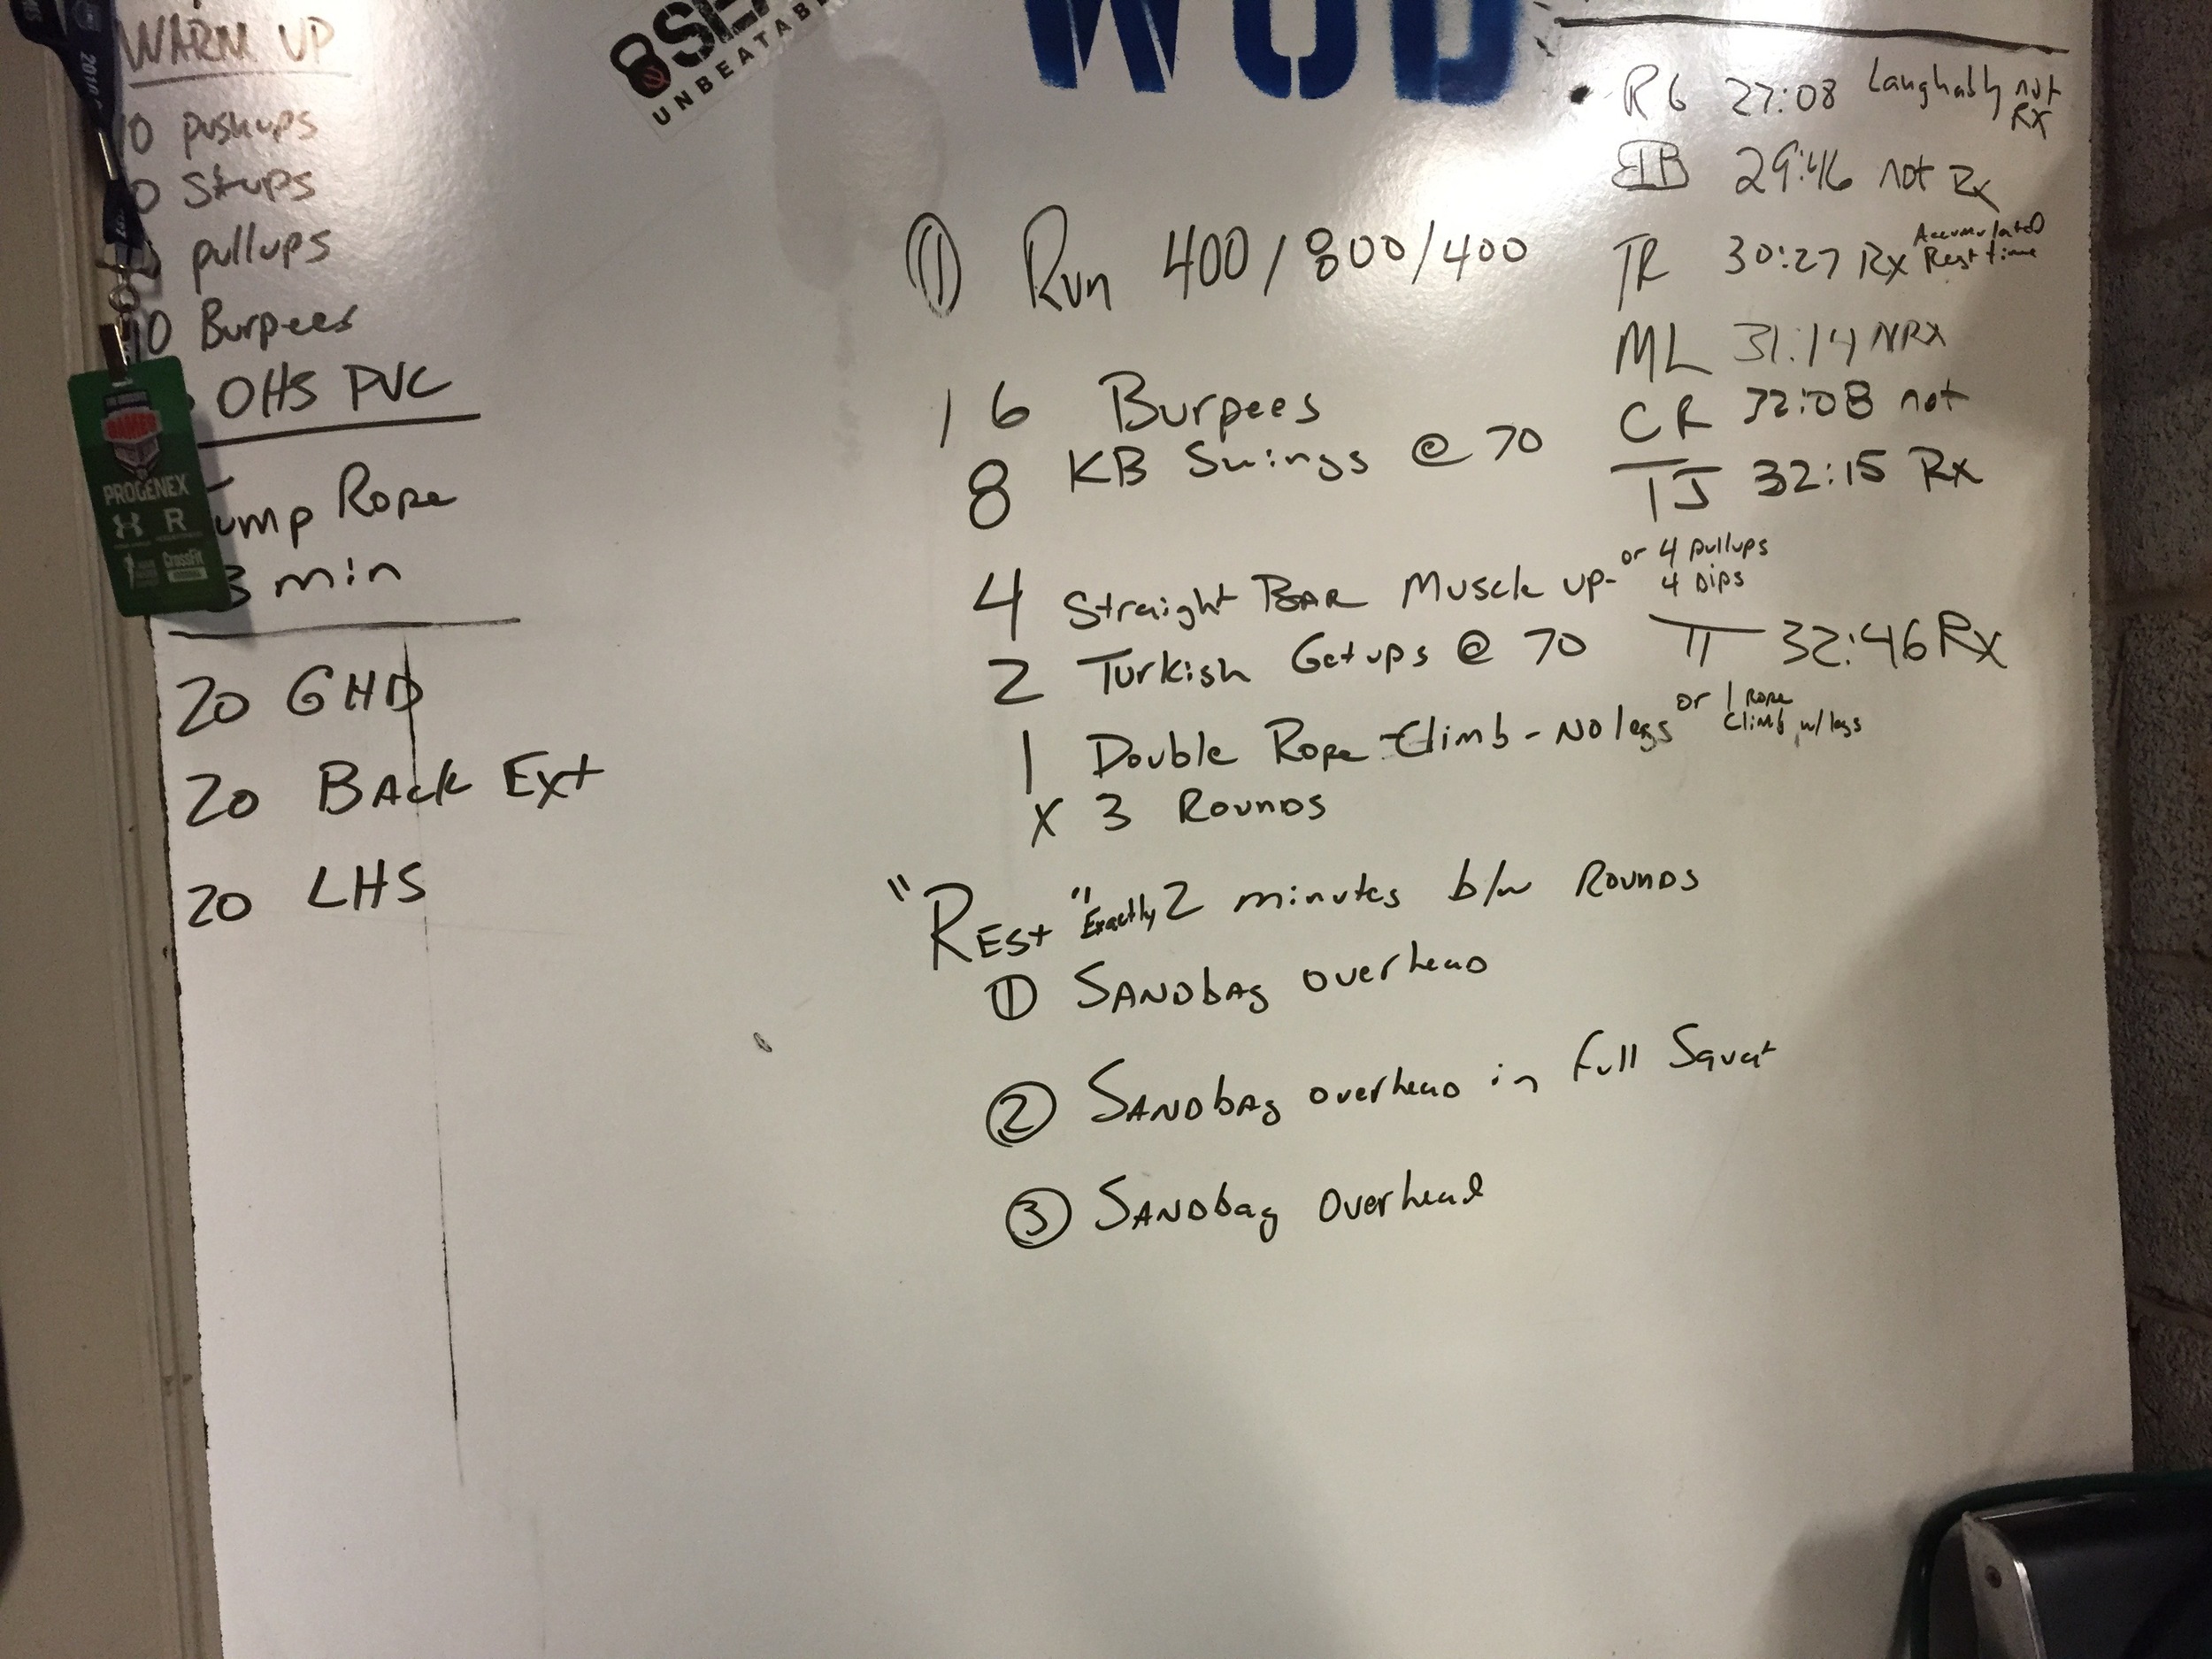 WARM UP
10 pushups
0 Situps
pullups
10 Burpees
OHS PVC
ump Rope
3 min
20 GHD
20 BAck Ext
20 LHS
2016
PROGENEX
R
CrossFit
UNBEATAB
WOD
① Run 400/800/400
16 Burpees
8 KB Swings @ 70
4 Straight BAR Muscle up- or 4 pullups
4 Dips
2 Turkish Getups @ 70
1 Double Rope Climb - No legs or 1 Rope
Climb w/legs
x 3 Rounds
"REst" Exactly 2 minutes b/w Rounds
① SANDbAg overhead
② SANDbAg overhead in full Squat
③ SANDbag Overhead
RG 27:08 Laughably not
Rx
29:46 not Rx
TR 30:27 Rx Accumulated
Rest time
ML 31:14 NRX
CR 32:08 not
TJ 32:15 Rx
TT 32:46 Rx